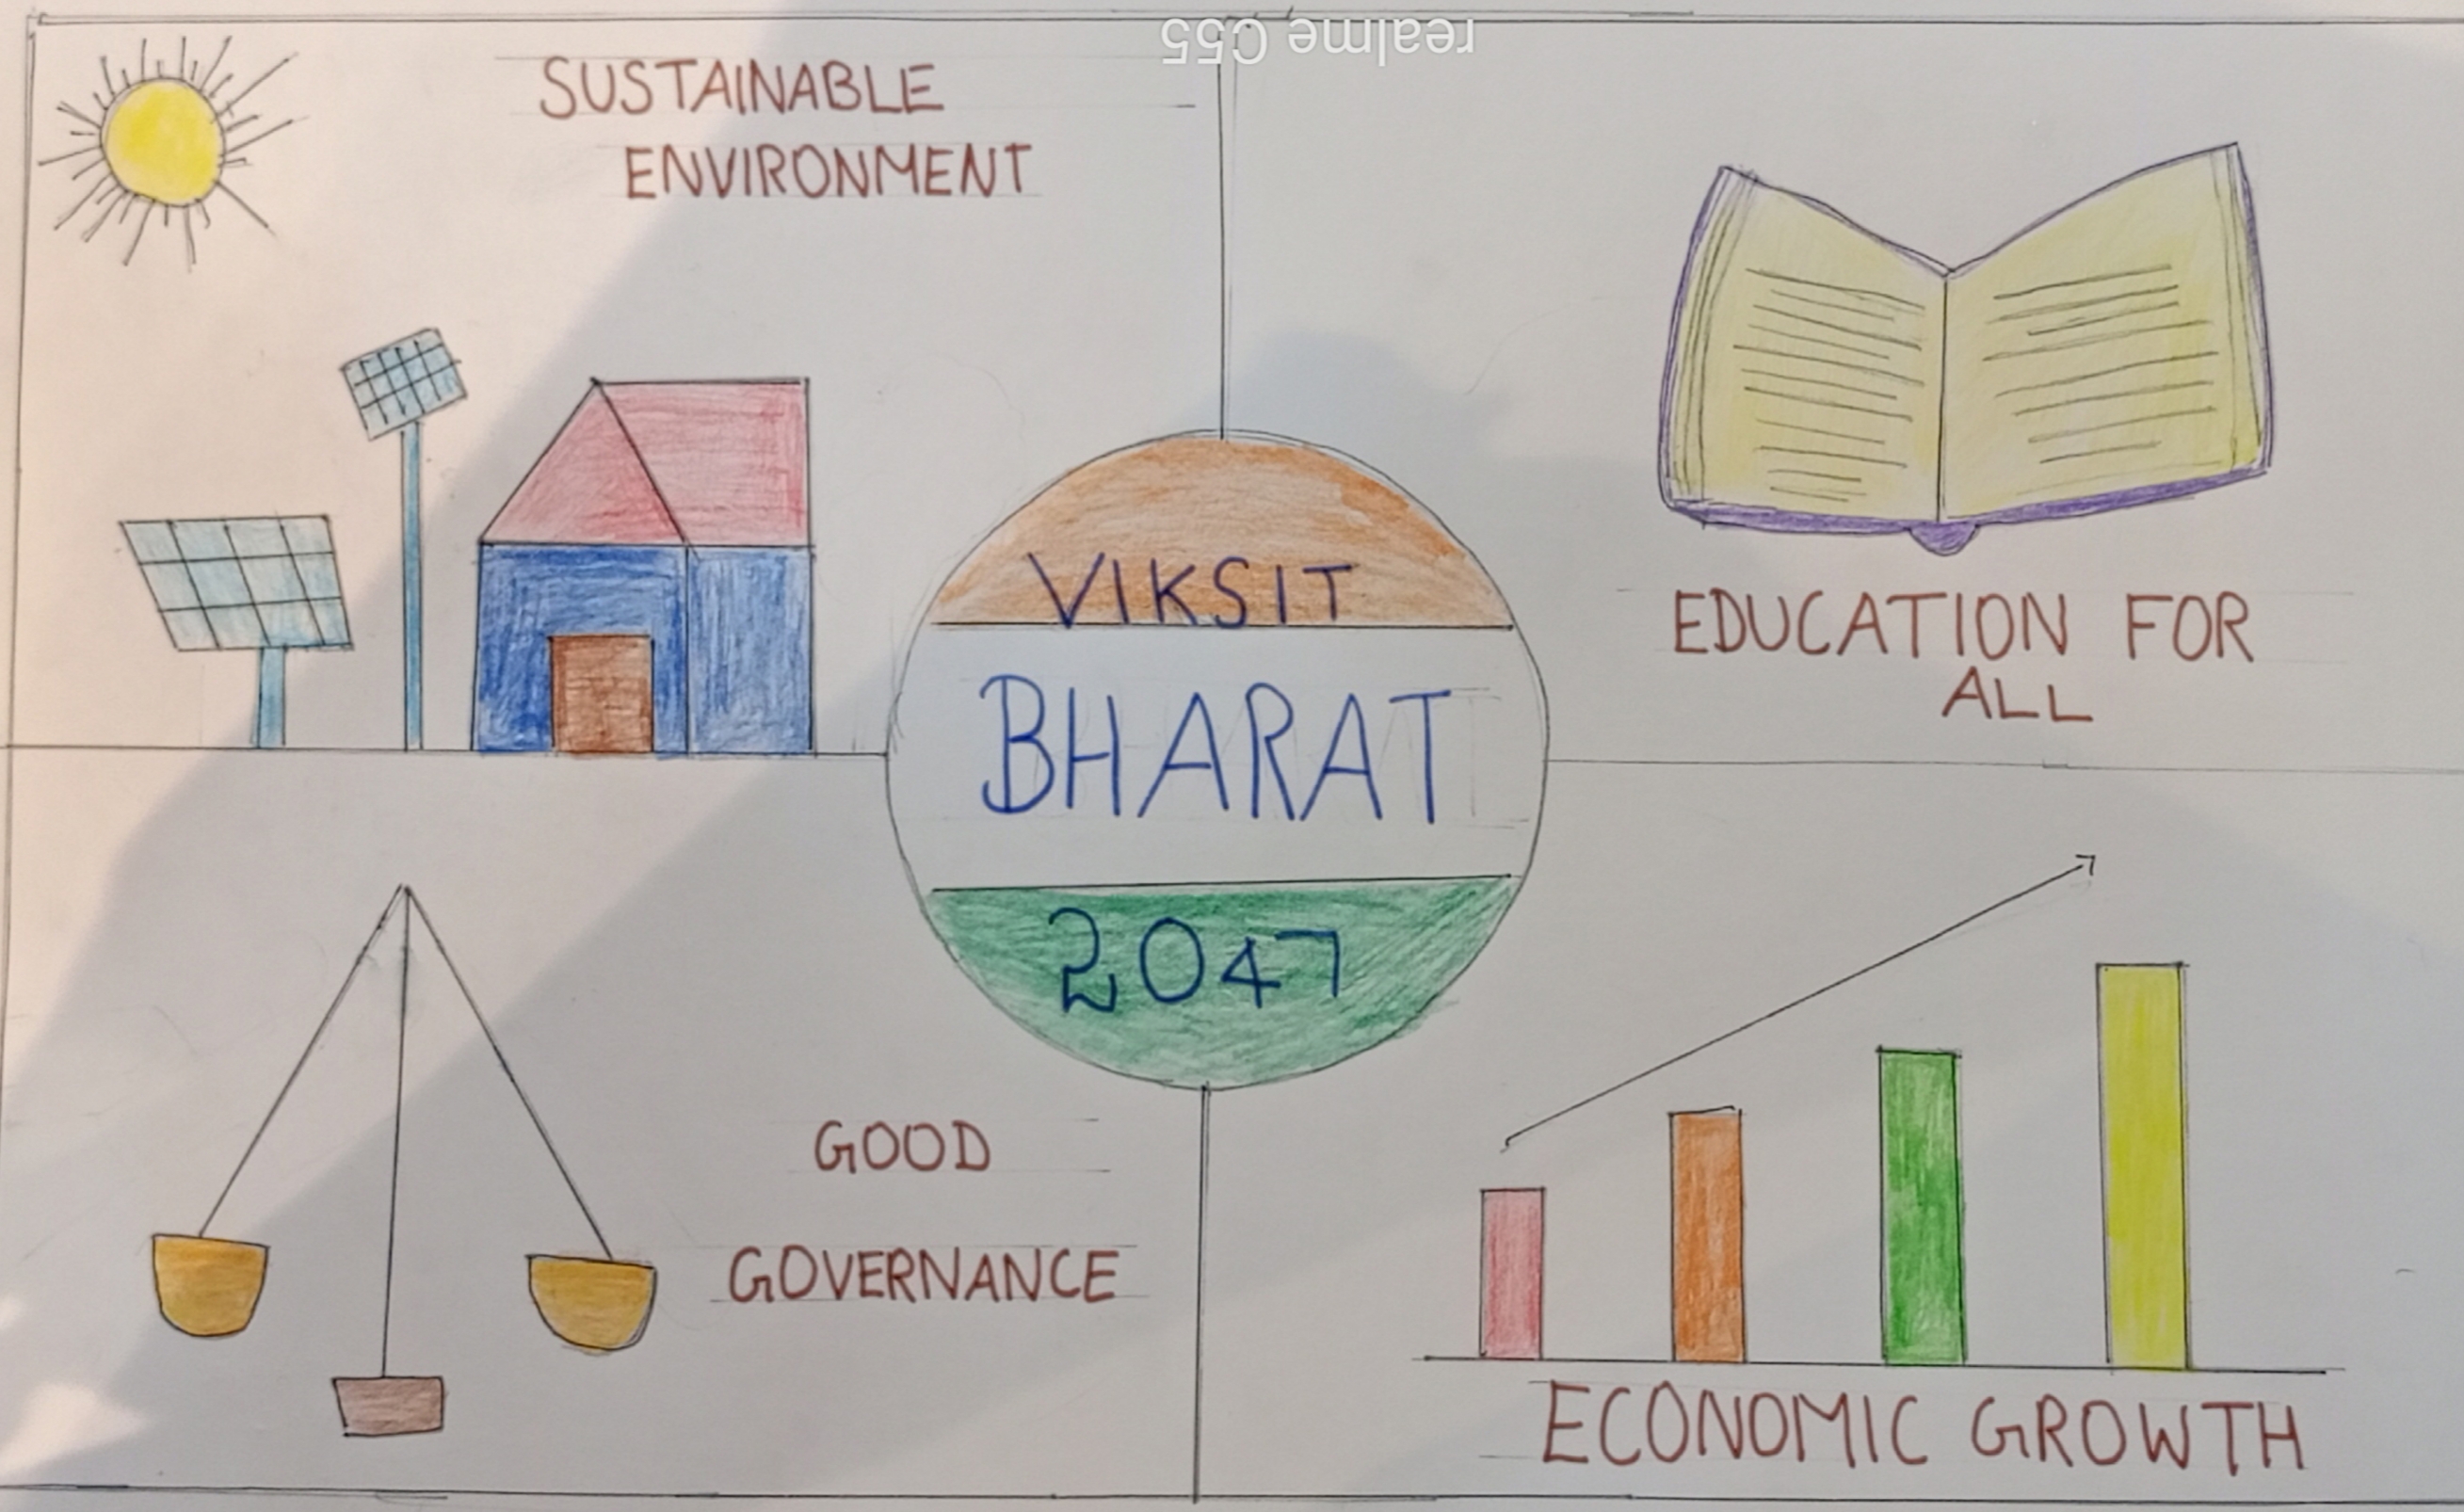 realme C55
SUSTAINABLE
ENVIRONMENT
EDUCATION FOR
ALL
VIKSIT
BHARAT
2047
GOOD
GOVERNANCE
ECONOMIC GROWTH